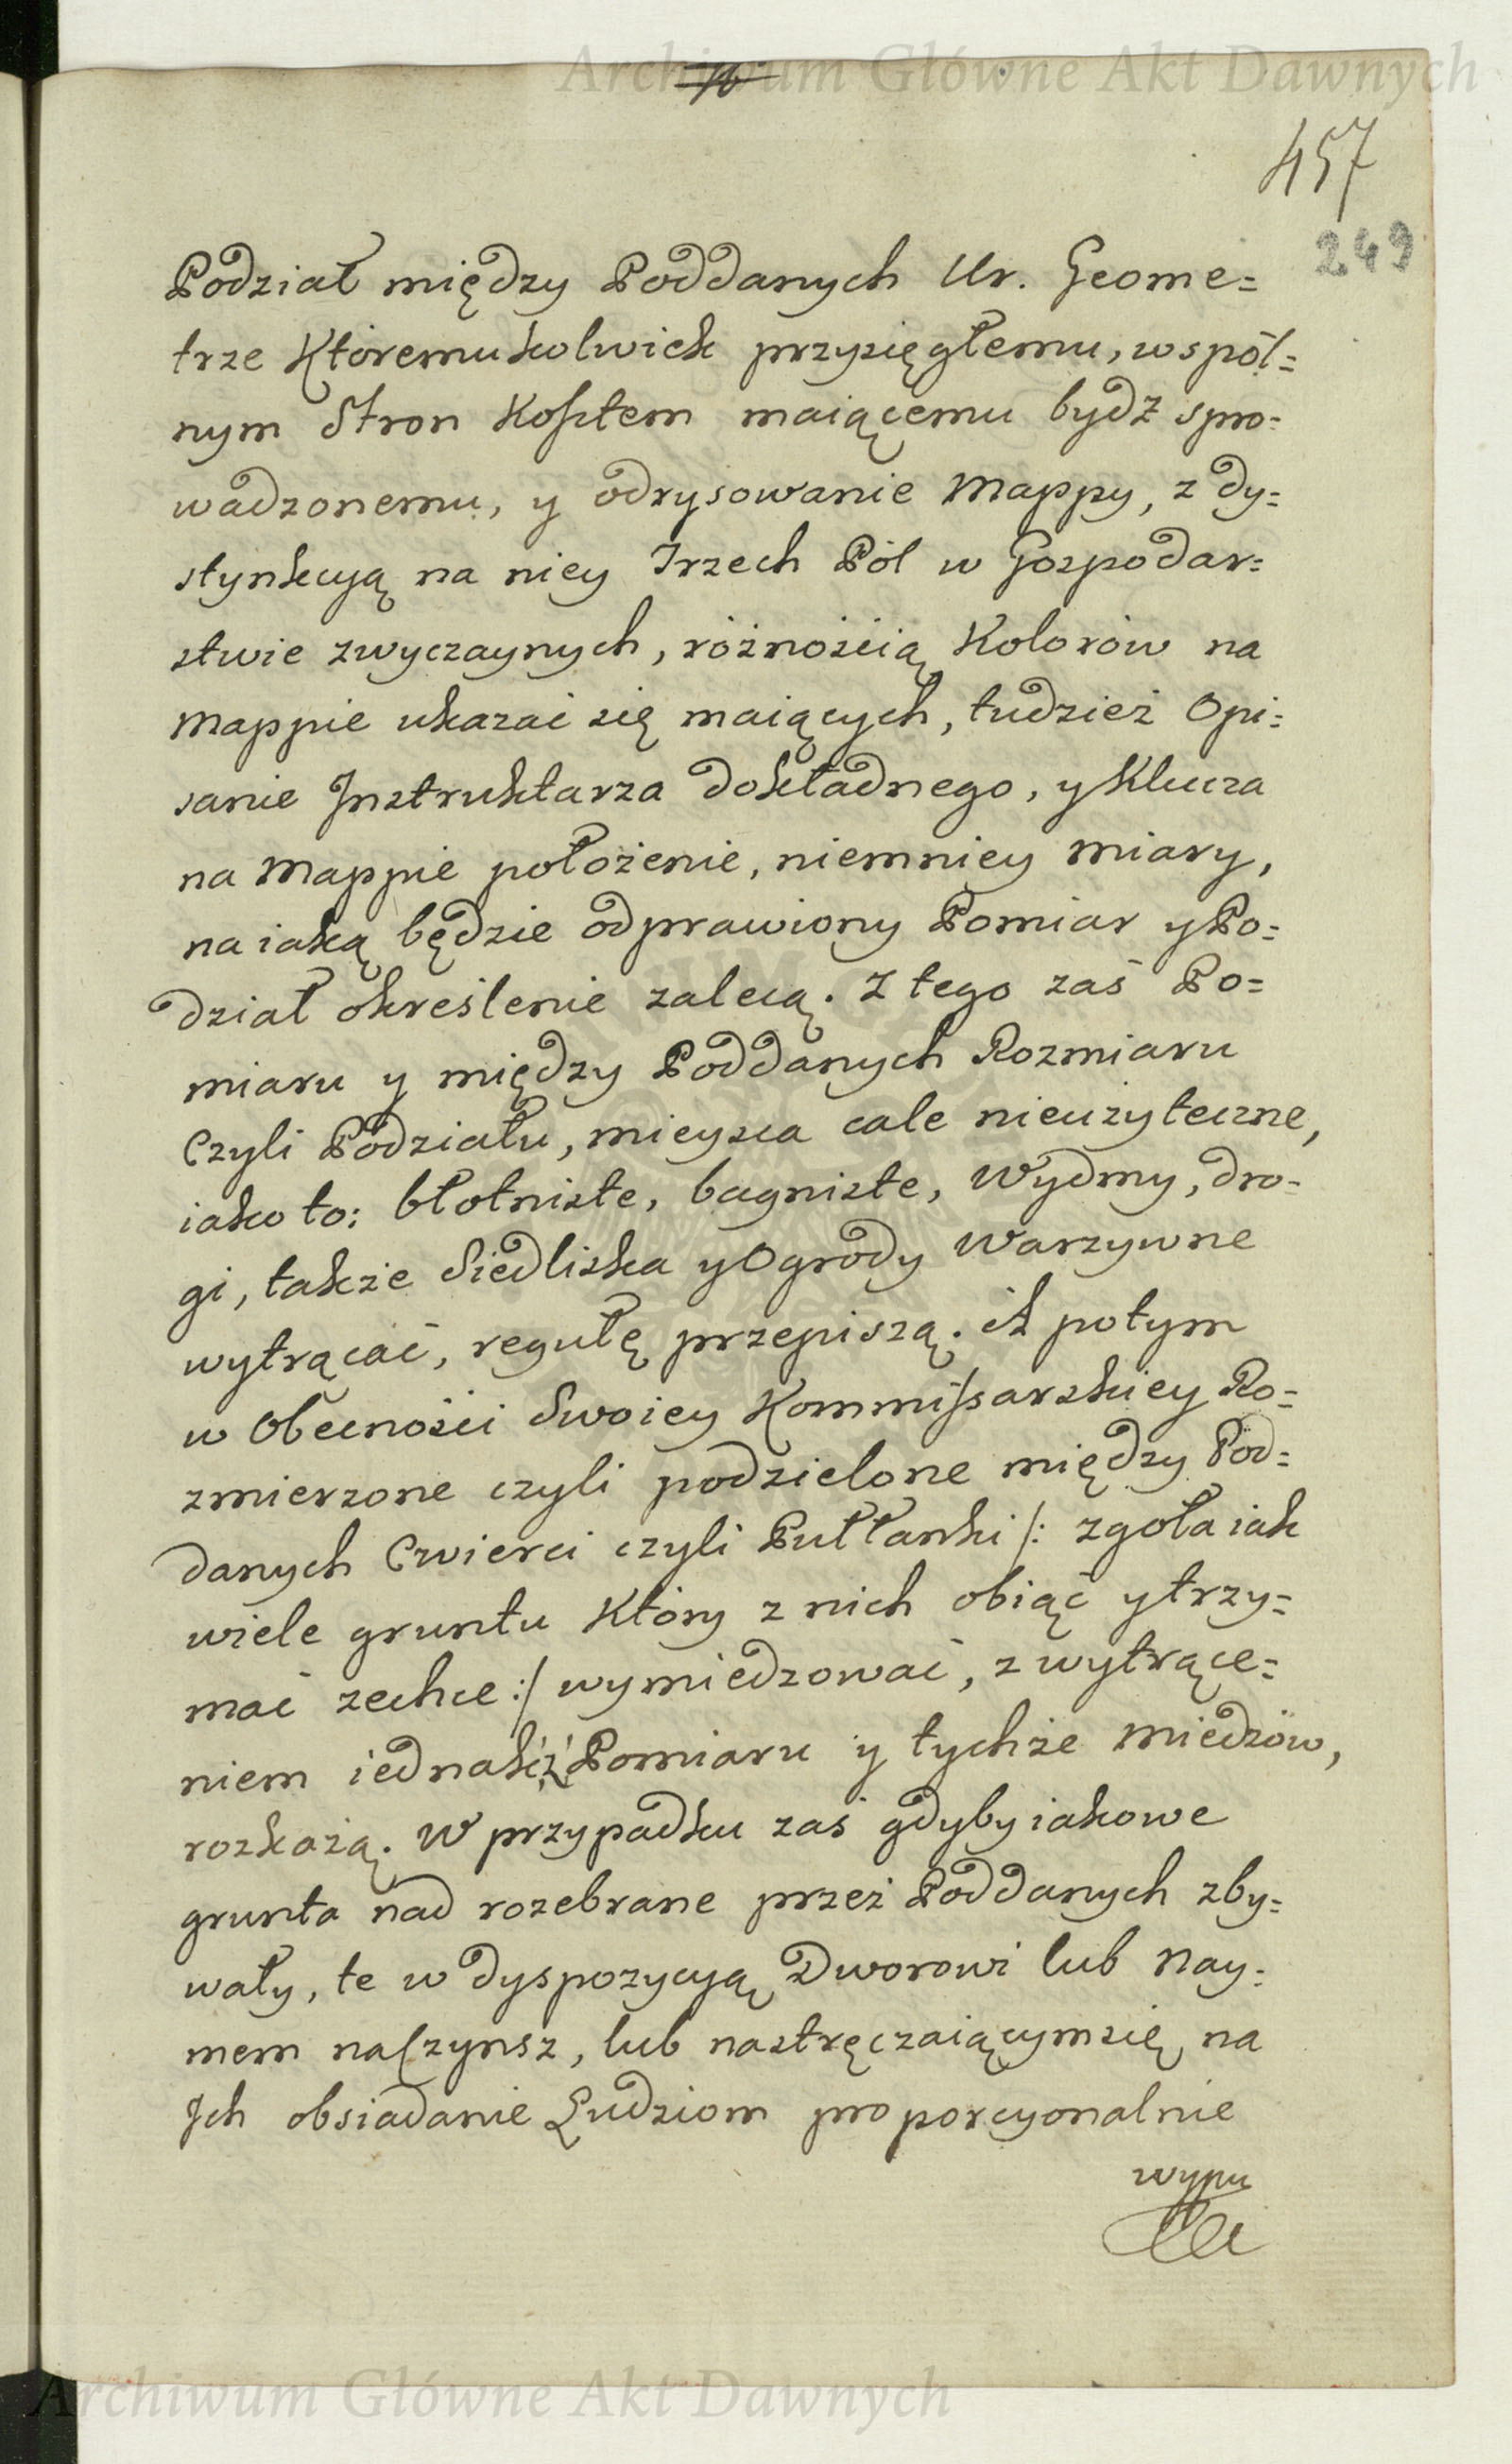 Archiwum Główne Akt Dawnych
457
249
Podział między Poddanych Ur. Geome=
trze Któremukolwiek przysięgłemu, wspól=
nym Stron Kosztem maiącemu bydź spro=
wadzonemu, y odrysowanie Mappy, z dy=
stynkcyą na niey Trzech Pól w Gospodar=
stwie zwyczaynych, różnością Kolorów na
Mappie ukazać się maiących, tudzież Opi=
sanie Jnstruktarza dokładnego, y Klucza
na Mappie położenie, niemniey miary,
na iaką będzie odprawiony Pomiar y Po=
dział określenie zalecą. Z tego zaś Po=
miaru y między Poddanych Rozmiaru
Czyli Podziału, mieysca cale nieużyteczne,
iako to: błotniste, bagniste, Wydmy, dro=
gi, także Siedliska y Ogrody Warzywne
wytrącać, regułę przepiszą. A potym
w Obecności Swoiey Kommissarskiey Ro=
zmierzone czyli podzielone między Pod=
danych Cwierci czyli Pułłanki /: zgoła iak
wiele gruntu Który z nich obiąć y trzy=
mać zechce :/ wymiedzować, z wytrące=
niem iednak z Pomiaru y tychże Miedzów,
rozkażą. W przypadku zaś gdyby iakowe
grunta nad rozebrane przez Poddanych zby=
wały, te w dyspozycyą Dworowi lub Nay=
mem na Czynsz, lub nastręczaiącym się na
Jch obsiadanie Ludziom proporcyonalnie
wypu
Archiwum Główne Akt Dawnych